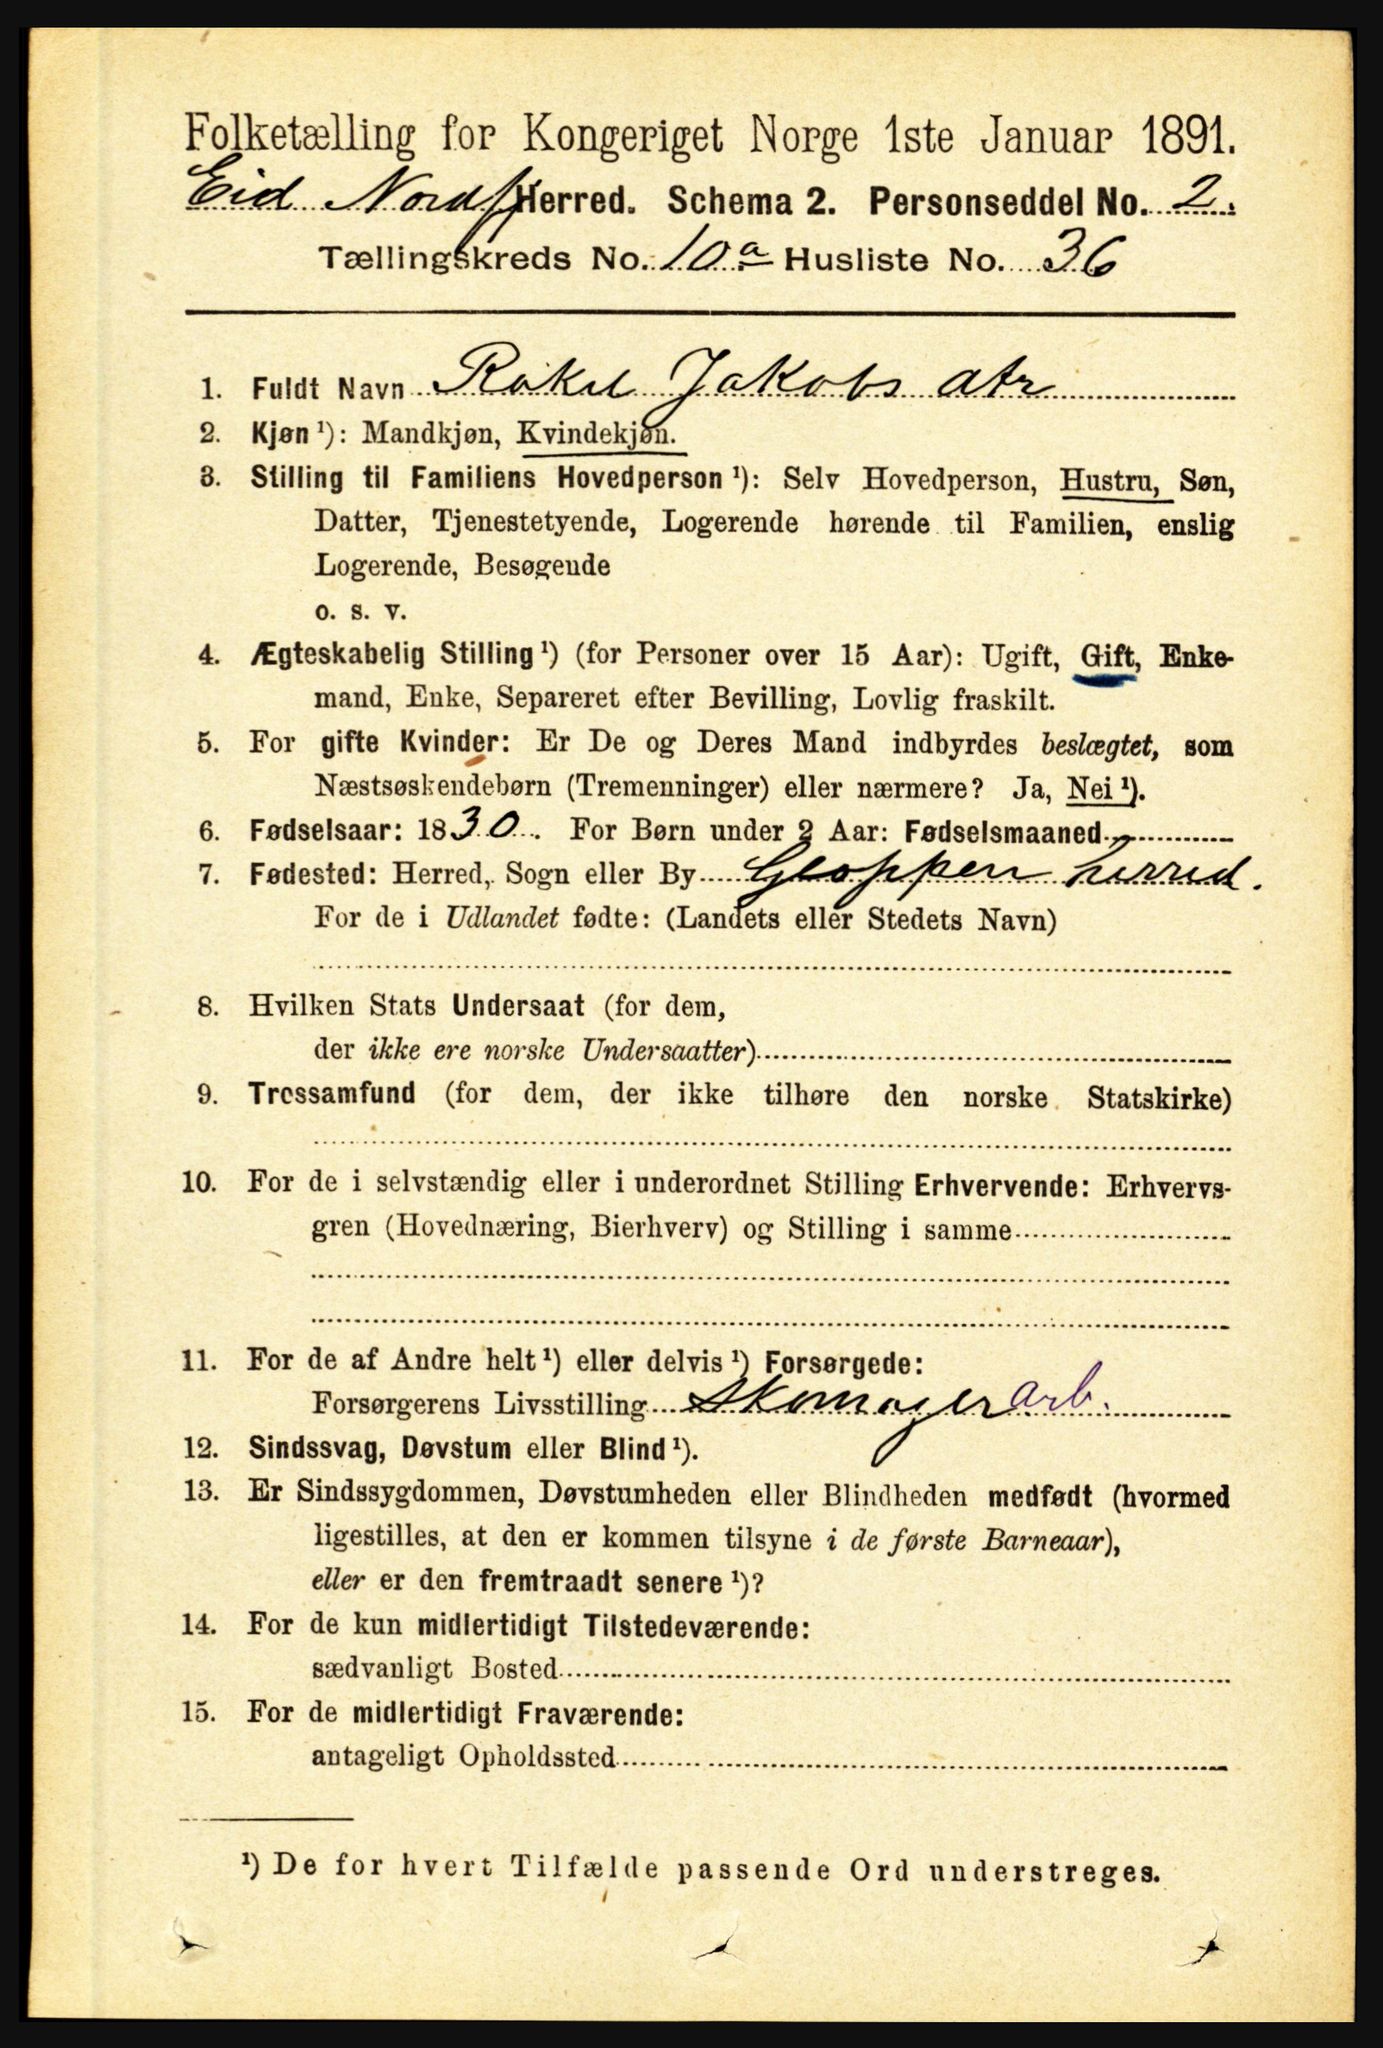 Folketælling for Kongeriget Norge 1ste Januar 1891.
Eid Nordfj Herred. Schema 2. Personseddel No. 2.
Tællingskreds No. 10a Husliste No. 36
1. Fuldt Navn Rakel Jakobs dtr
2. Kjøn ¹): Mandkjøn, Kvindekjøn.
3. Stilling til Familiens Hovedperson ¹): Selv Hovedperson, Hustru, Søn,
Datter, Tjenestetyende, Logerende hørende til Familien, enslig
Logerende, Besøgende
o. s. v.
4. Ægteskabelig Stilling ¹) (for Personer over 15 Aar): Ugift, Gift, Enke-
mand, Enke, Separeret efter Bevilling, Lovlig fraskilt.
5. For gifte Kvinder: Er De og Deres Mand indbyrdes beslægtet, som
Næstsøskendebørn (Tremenninger) eller nærmere? Ja, Nei ¹).
6. Fødselsaar: 1830. For Børn under 2 Aar: Fødselsmaaned
7. Fødested: Herred, Sogn eller By Gloppen herred.
For de i Udlandet fødte: (Landets eller Stedets Navn)
8. Hvilken Stats Undersaat (for dem,
der ikke ere norske Undersaatter)
9. Trossamfund (for dem, der ikke tilhøre den norske Statskirke)
10. For de i selvstændig eller i underordnet Stilling Erhvervende: Erhvervs-
gren (Hovednæring, Bierhverv) og Stilling i samme
11. For de af Andre helt ¹) eller delvis ¹) Forsørgede:
Forsørgerens Livsstilling Skomager arb.
12. Sindssvag, Døvstum eller Blind ¹).
13. Er Sindssygdommen, Døvstumheden eller Blindheden medfødt (hvormed
ligestilles, at den er kommen tilsyne i de første Barneaar),
eller er den fremtraadt senere ¹)?
14. For de kun midlertidigt Tilstedeværende:
sædvanligt Bosted
15. For de midlertidigt Fraværende:
antageligt Opholdssted
¹) De for hvert Tilfælde passende Ord understreges.